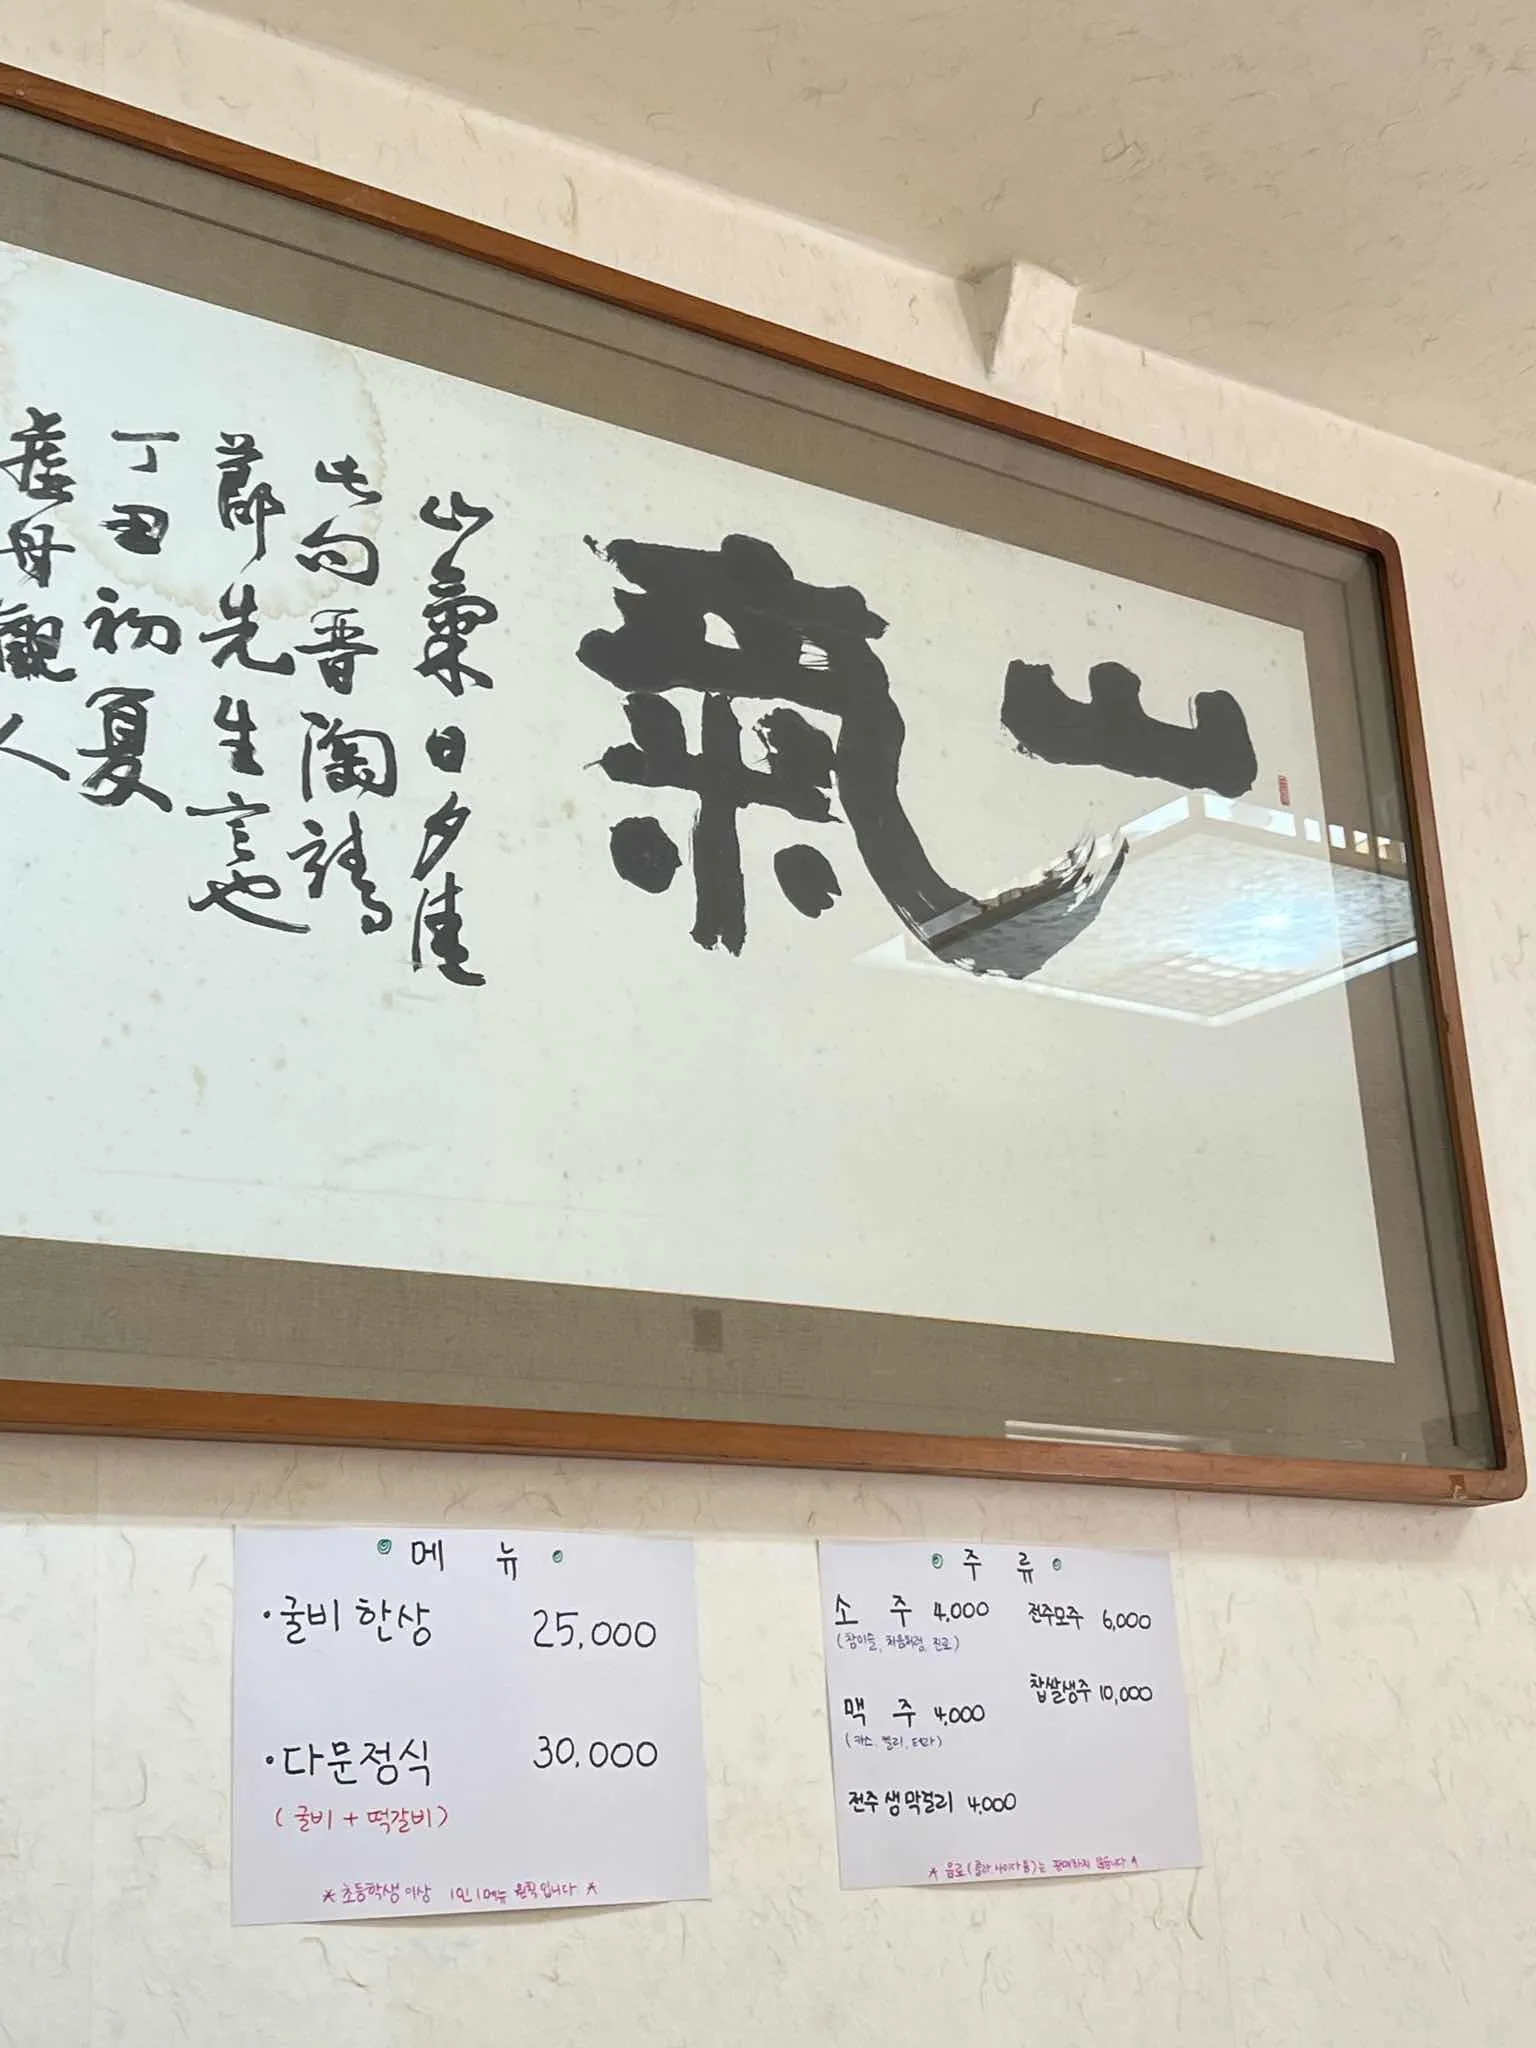 山氣
山氣日夕佳
此句晋陶靖
節先生言也
丁丑初夏
母觀人
메 뉴
· 굴비 한상 25,000
· 다문정식 30,000
(굴비 + 떡갈비)
* 초등학생 이상 1인 1메뉴 원칙입니다 *
주 류
소 주 4,000
(참이슬, 처음처럼, 진로)
맥 주 4,000
(카스, 켈리, 테라)
전주 생막걸리 4,000
전주모주 6,000
찹쌀생주 10,000
* 음료(콜라 사이다 등)는 판매하지 않습니다 *